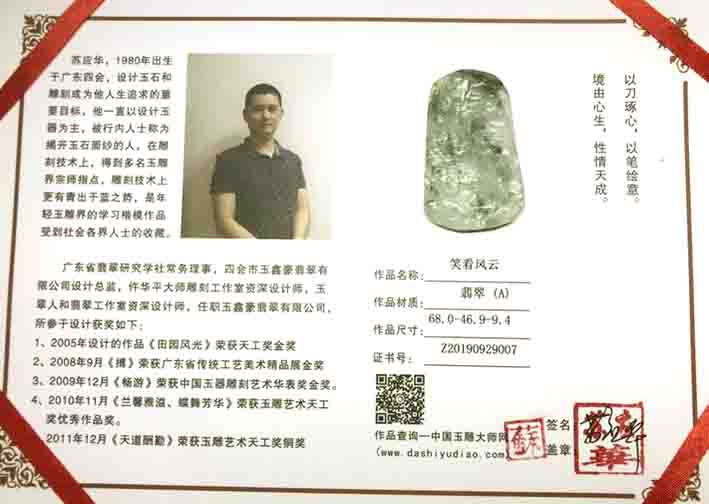 苏应华，1980年出生
于广东四会，设计玉石和
雕刻成为他人生追求的重
要目标，他一直以设计玉
器为主，被行内人士称为
揭开玉石面纱的人，在雕
刻技术上，得到多名玉雕
界宗师指点，雕刻技术上
更有青出于蓝之势，是年
轻玉雕界的学习楷模作品
受到社会各界人士的收藏。
广东省翡翠研究学社常务理事，四会市玉鑫豪翡翠有
限公司设计总监，仵华平大师雕刻工作室资深设计师，玉
翠人和翡翠工作室资深设计师，任职玉鑫豪翡翠有限公司，
所参于设计获奖如下：
1、2005年设计的作品《田园风光》荣获天工奖金奖
2、2008年9月《搏》荣获广东省传统工艺美术精品展金奖
3、2009年12月《畅游》荣获中国玉器雕刻艺术华表奖金奖。
4、2010年11月《兰馨雅溢、蝶舞芳华》荣获玉雕艺术天工
奖优秀作品奖。
2011年12月《天道酬勤》荣获玉雕艺术天工奖铜奖
以刀琢心，以笔绘意。
境由心生，性情天成。
作品名称：笑看风云
作品材质：翡翠（A）
作品尺寸：68.0-46.9-9.4
证书号：Z20190929007
作品查询—中国玉雕大师网
(www.dashiyudiao.com)
签名
盖章
蘇